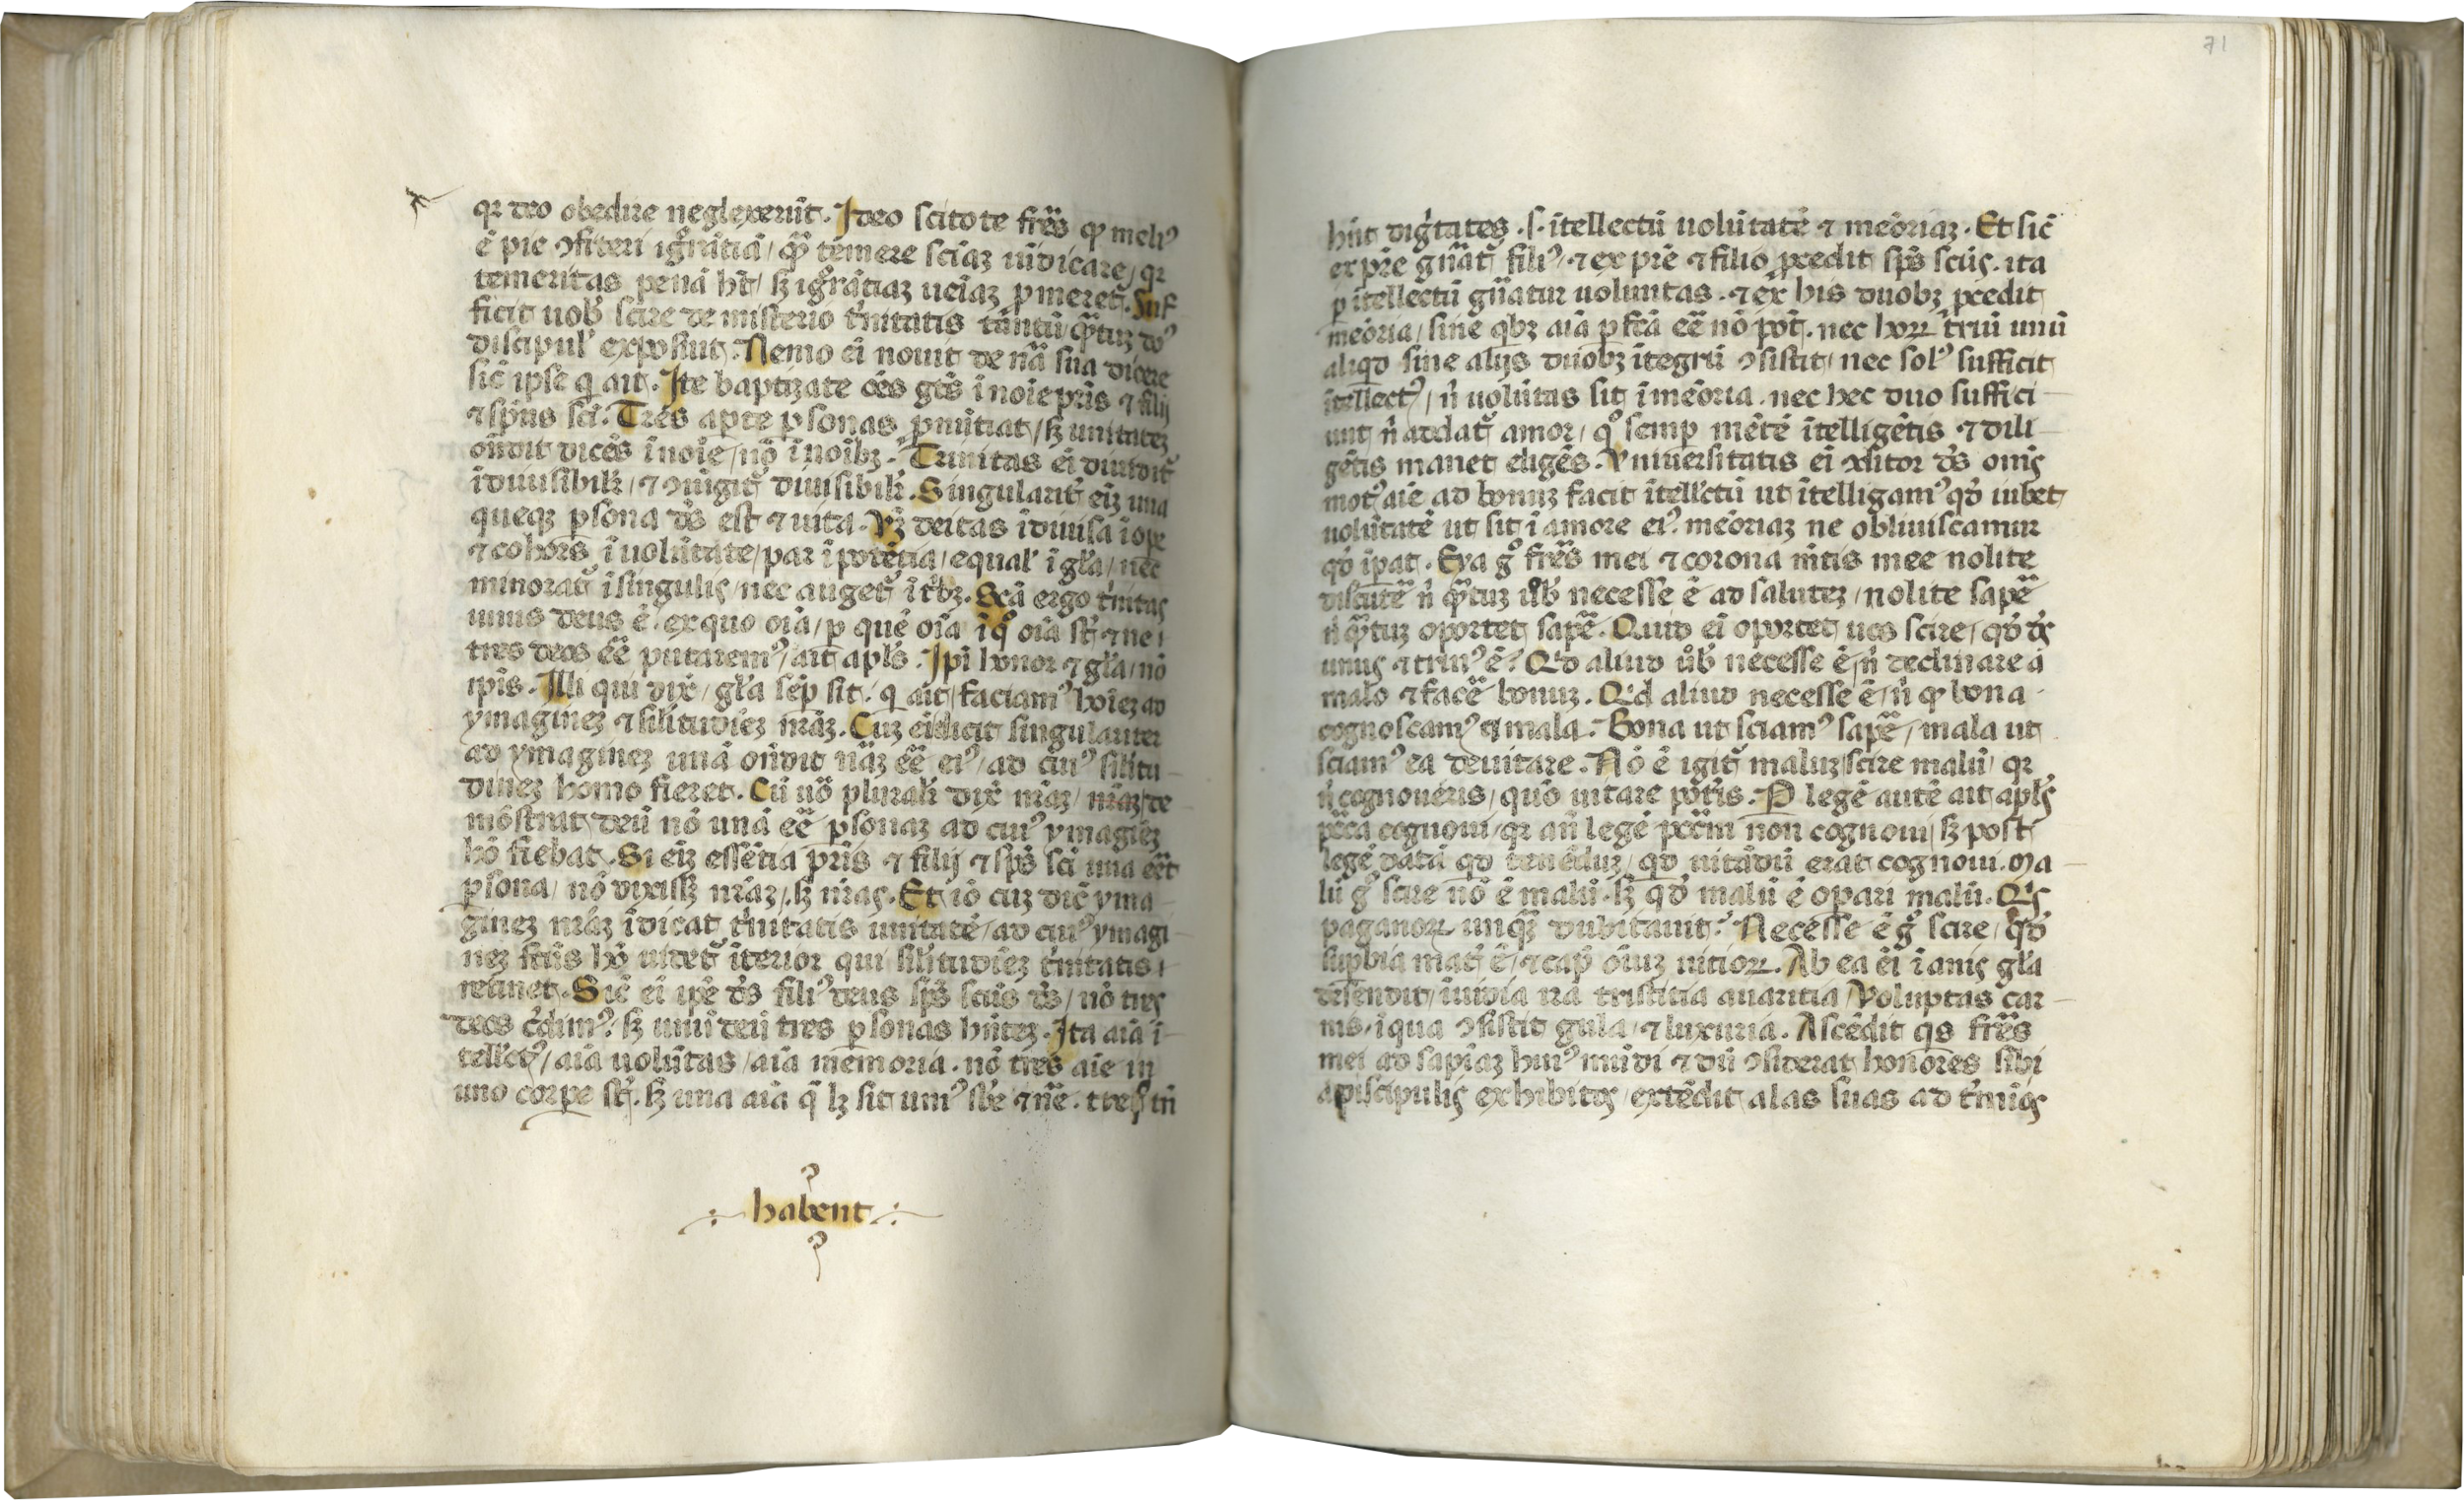 qr deo obedire neglexerūt. Ideo scitote fr̄es ꝙ meliꝰ
ē pie ꝯfiteri igͦrātiā / qͣꝫ temere sciāz iūdicare / qr
temeritas penā ht̄ / sꝫ igͦrātiaz ueīaz ꝓmeret̄. Suf
ficit uob̓ scire de misterio t̓nitatis tāntū qͣꝫtuz dūꝰ
discipul̓ exposuit. Nemo ei nouit de nr̄ā sua dicere
sic̄ ipse q ait. Ite baptizate oēs gēs ī noīe pr̄is ⁊ filij
⁊ sp̄ūs sc̄i. Tres apte ꝑsonas ꝓnūtiat / sꝫ unitatez
ōndit dicēs ī noīe / nō ī noībꝫ. Trinitas ei diuidit̄
īdiuisibilr̄ / ⁊ ꝯiūgit̄ diuisibilr̄. Singularit̓ eīz una
queqꝫ ꝑsona d̄s est ⁊ uita. Vꝫ deitas īdiuisa ī ope
⁊ cohors ī uolūtate / par ī potētia / equal̓ ī gl̄a / nec
minorat̄ ī singulis / nec auget̄ ī t̓bꝫ. Sc̄ā ergo t̓nitas
unus deus ē. ex quo oīa / ꝑ quē oīa ī qͦ oīa st̄ ⁊ ne
tres deos ēē putaremꝰ / ait apl̄s. Ipi honor ⁊ gl̄a / nō
ipīs. Illi qui dix̄ / gl̄a sēꝑ sit. q ait / faciamꝰ hoīez ad
ymaginez ⁊ sil̄itudiēz nr̄āz. Cuz ei dicit singulariter
ad ymaginez unā ōndit nāz ēē eiꝰ / ad cuiꝰ sil̄itu
dinez homo fieret. Cū uō pluralr̄ dix̄ nr̄āz / nr̄āz de
mōstrat deū nō unā ēē ꝑsonaz ad cuiꝰ ymagiēz
hō fiebat. Si eīz essētia pr̄is ⁊ filij ⁊ sp̄s sc̄i una eēt
ꝑsona / nō dixissꝫ nr̄āz / sꝫ nr̄as. Et iō cuz dic̄ yma
ginez nr̄āz īdicat t̓nitatis unitatē / ad cuiꝰ ymagi
nez fc̄us hō uidet̄ īterior qui sil̄itudiēz t̓nitatis
retinet. Sic̄ ei ipē d̄s filiꝰ deus sp̄s sc̄us d̄s / nō tres
deos c̓dimꝰ / sꝫ unū deū tres ꝑsonas hn̄tez. Ita aīa ī
tell̄cꝰ / aīa uolūtas / aīa memoria. nō tres aīe in
uno corpe st̄. sꝫ una aīa q̄ lꝫ sit umꝰ sb̄e ⁊ nē. tres tn̄
habent
71
hn̄t dig̓tates. s. ītellectū uolūtatē ⁊ meōriaz. Et sic̄
ex pr̄e gn̄at̄ filiꝰ / ⁊ ex pr̄e ⁊ filio ꝓcedit sp̄s sc̄us. ita
ꝑ ītellectū gn̄atur uoluntas. ⁊ ex his duobꝫ ꝓcedit
meōria / sine qbꝫ aīa ꝑfc̄ā ēē nō pōt. nec hoꝝ triū unū
aliqd sine alijs duobꝫ ītegrū ꝯsistit / nec solꝰ sufficit
ītellectꝰ / n̓ uolūtas sit ī meōria. nec hec duo suffici
unt n̓ addat̄ amor / qͦ semꝑ mētē ītelligētis ⁊ dili
gētis manet eligēs. Vniuersitatis ei ꝯditor d̄s onīs
motꝰ aīe ad bonuz facit ītell̄ctū ut ītelligamꝰ qd̓ iubet
uolūtatē ut sit ī amore eiꝰ. meōriaz ne obliuiscamur
qd̓ īpat. Eya gͦ fr̄es mei ⁊ corona m̄tis mee nolite
discutē n̓ qͣꝫtuz uob̓ necesse ē ad salutez / nolite sapē
n̓ qͣꝫtuz oportet sapē. Quid ei oportet uos scire / qd̓ d̄s
unus ⁊ trinꝰ ē? Qd aliud uob̓ necesse ē / n̓ declinare a
malo ⁊ facē bonuz. Qd aliud necesse ē / n̓ ꝙ bona
cognoscamꝰ ⁊ mala. Bona ut sciamꝰ sapē / mala ut
sciamꝰ ea deuitare. Nō ē igit̄ maluz scire malū / qr
n̓ cognoueris / quō uitare pōt̓is. P legē autē ait apl̄s
pc̄cā cognoui / qr an̄ legē pc̄cm non cognoui / sꝫ post
legē datā qd tenēduz / qd uitādū erat cognoui. Ma
lū gͦ scire nō ē malū. sꝫ qd̓ malū ē opari malū. Qs
paganoꝝ unqͣꝫ dubitauit? Necesse ē gͦ scire / qd̓
suꝑbia mat̓ ē / ⁊ cap̄ oīuz uitioꝝ. Ab ea ei īanis gl̄a
descendit / īuidia ira tristitia auaritia / Voluptas car
nis / ī qua ꝯsistit gula / ⁊ luxuria. Ascēdit qs fr̄es
mei ad sapīaz huiꝰ mūdi ⁊ dū ꝯsiderat honores sibi
a piscipulis exhibitos / extēdit alas suas ad t̓mīos